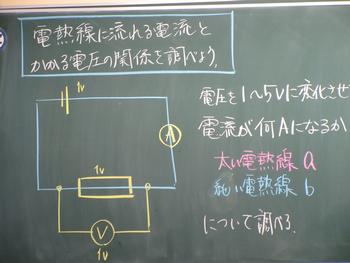 電熱線に流れる電流と
かかる電圧の関係を調べよう。
1V
A
1V
V
1V
電圧を1〜5Vに変化させ
電流が何Aになるか
太い電熱線a
細い電熱線b
について調べる。